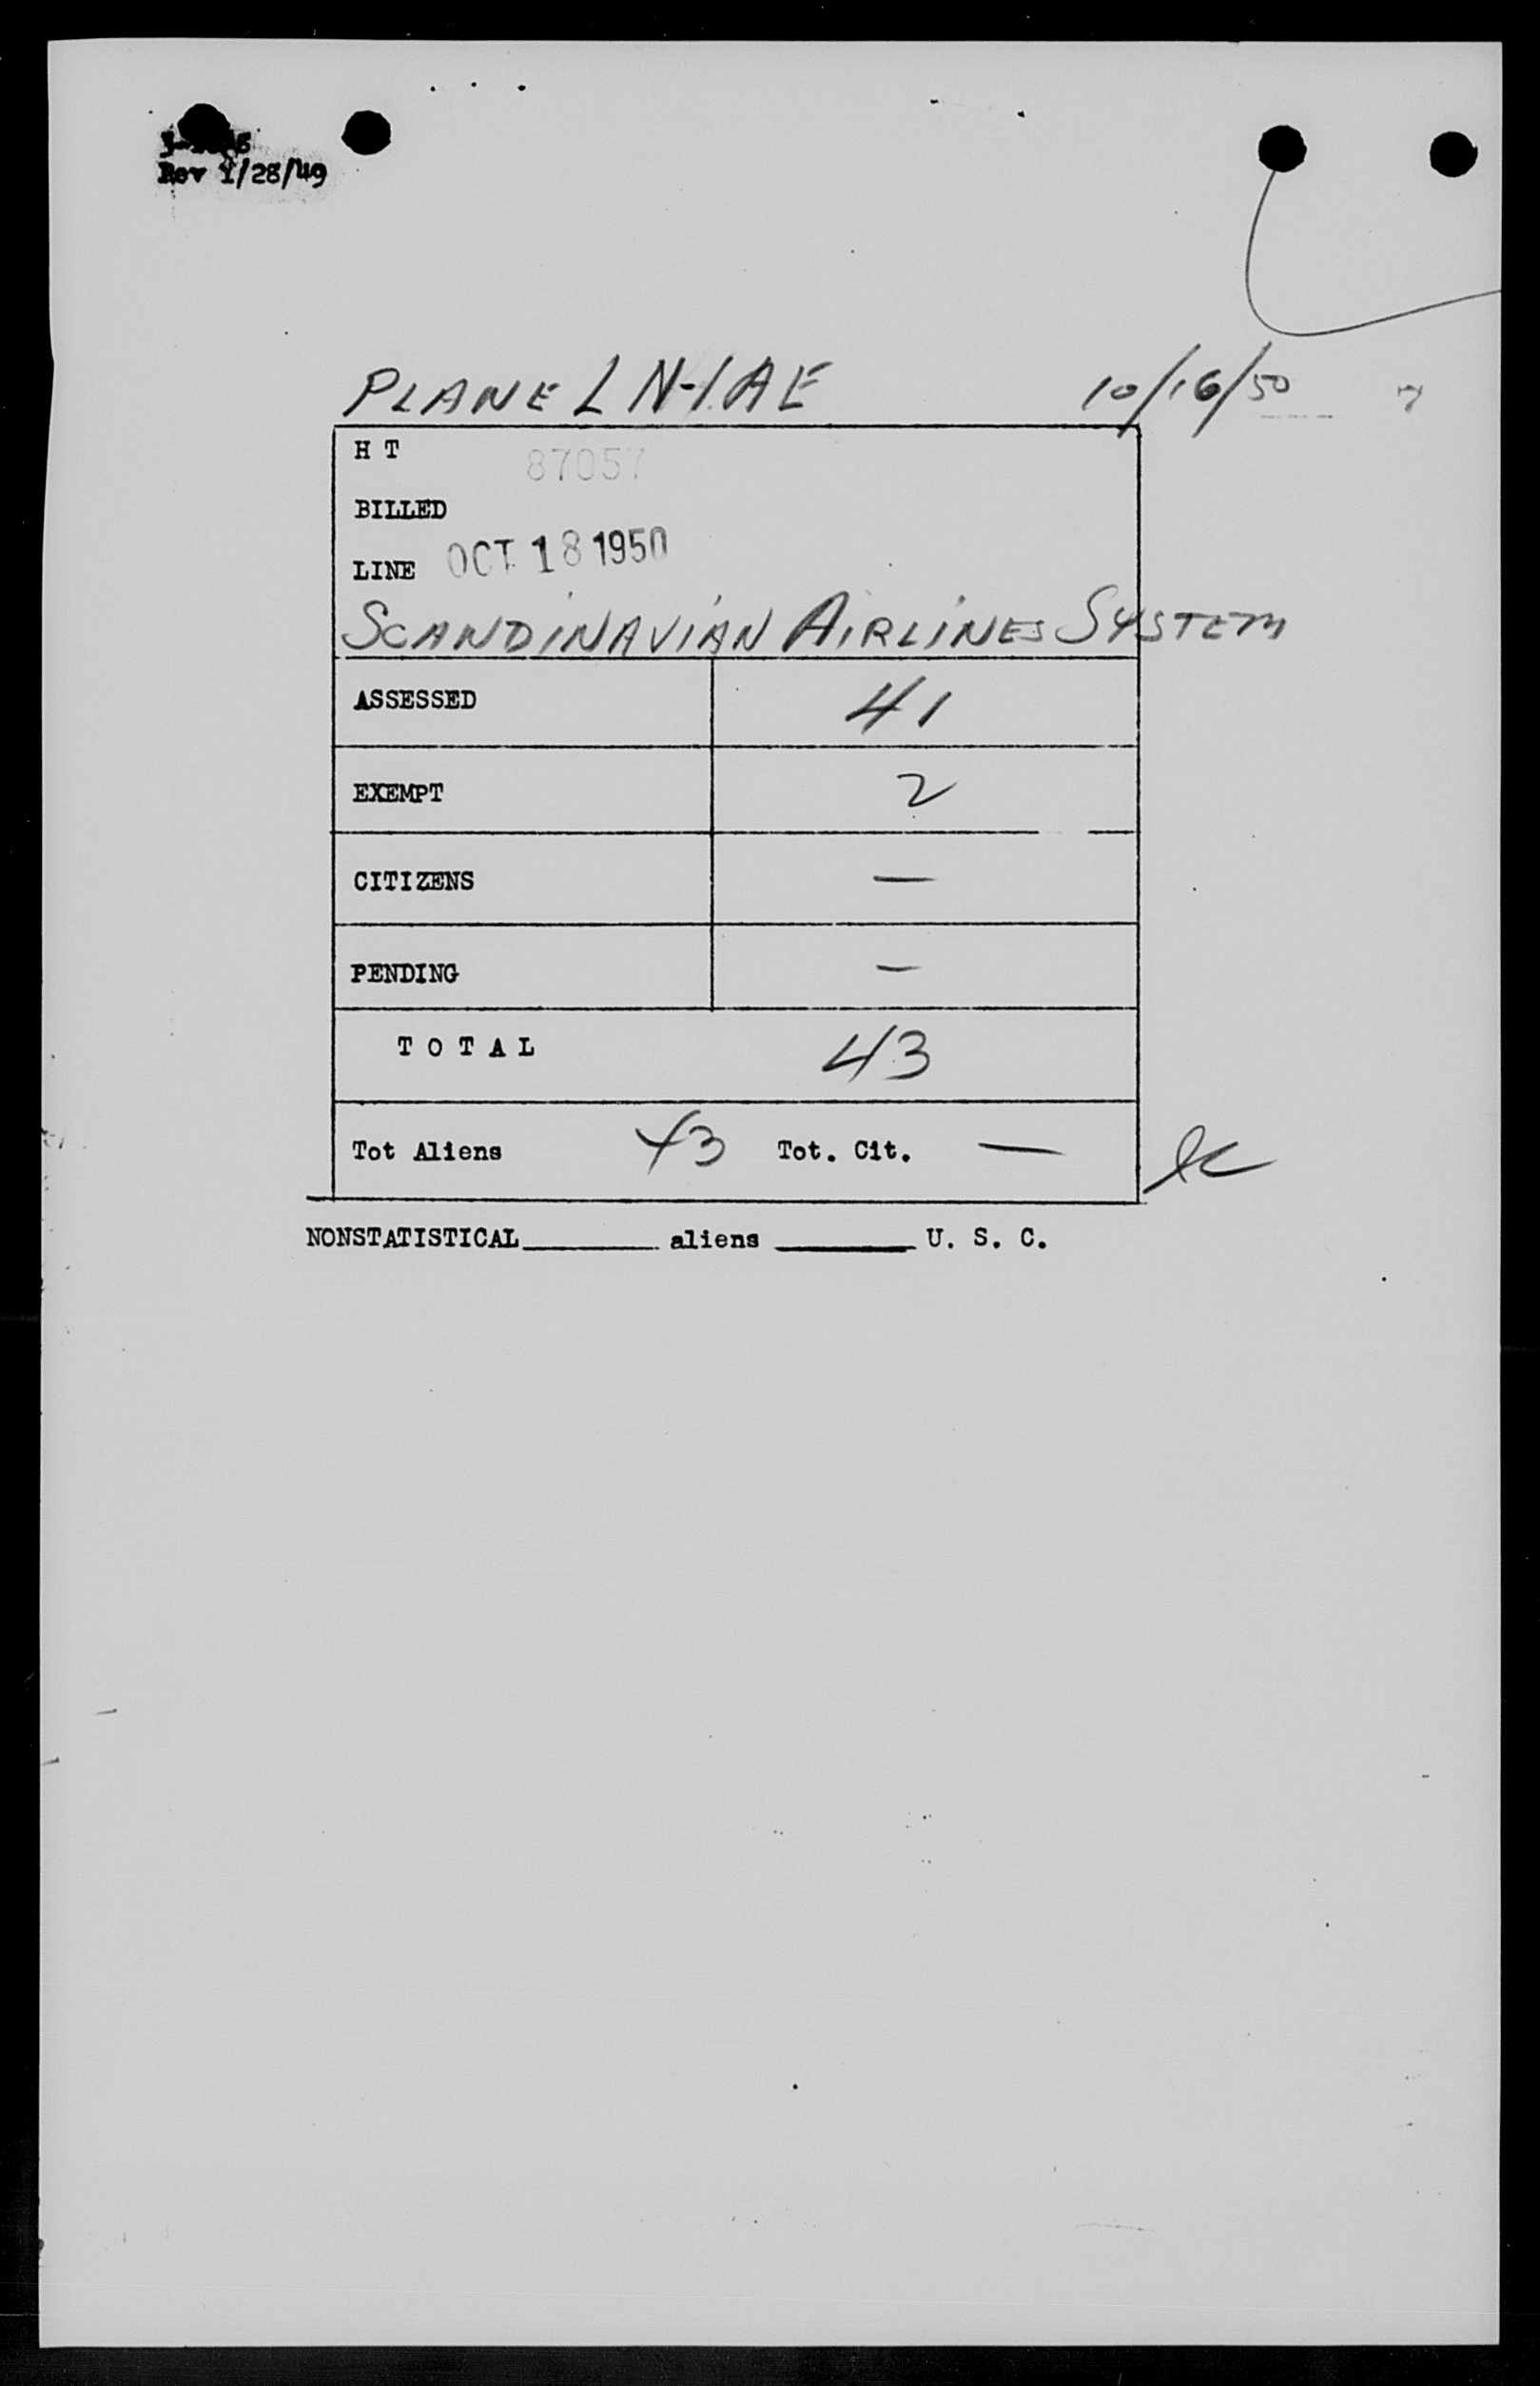 Rev 1/28/49
PLANE LN-IAE 10/16/50
H T 87057
BILLED
LINE OCT 18 1950
SCANDINAVIAN AIRLINES SYSTEM
ASSESSED 41
EXEMPT 2
CITIZENS —
PENDING —
TOTAL 43
Tot Aliens 43 Tot. Cit. —
NONSTATISTICAL________ aliens ________ U. S. C.